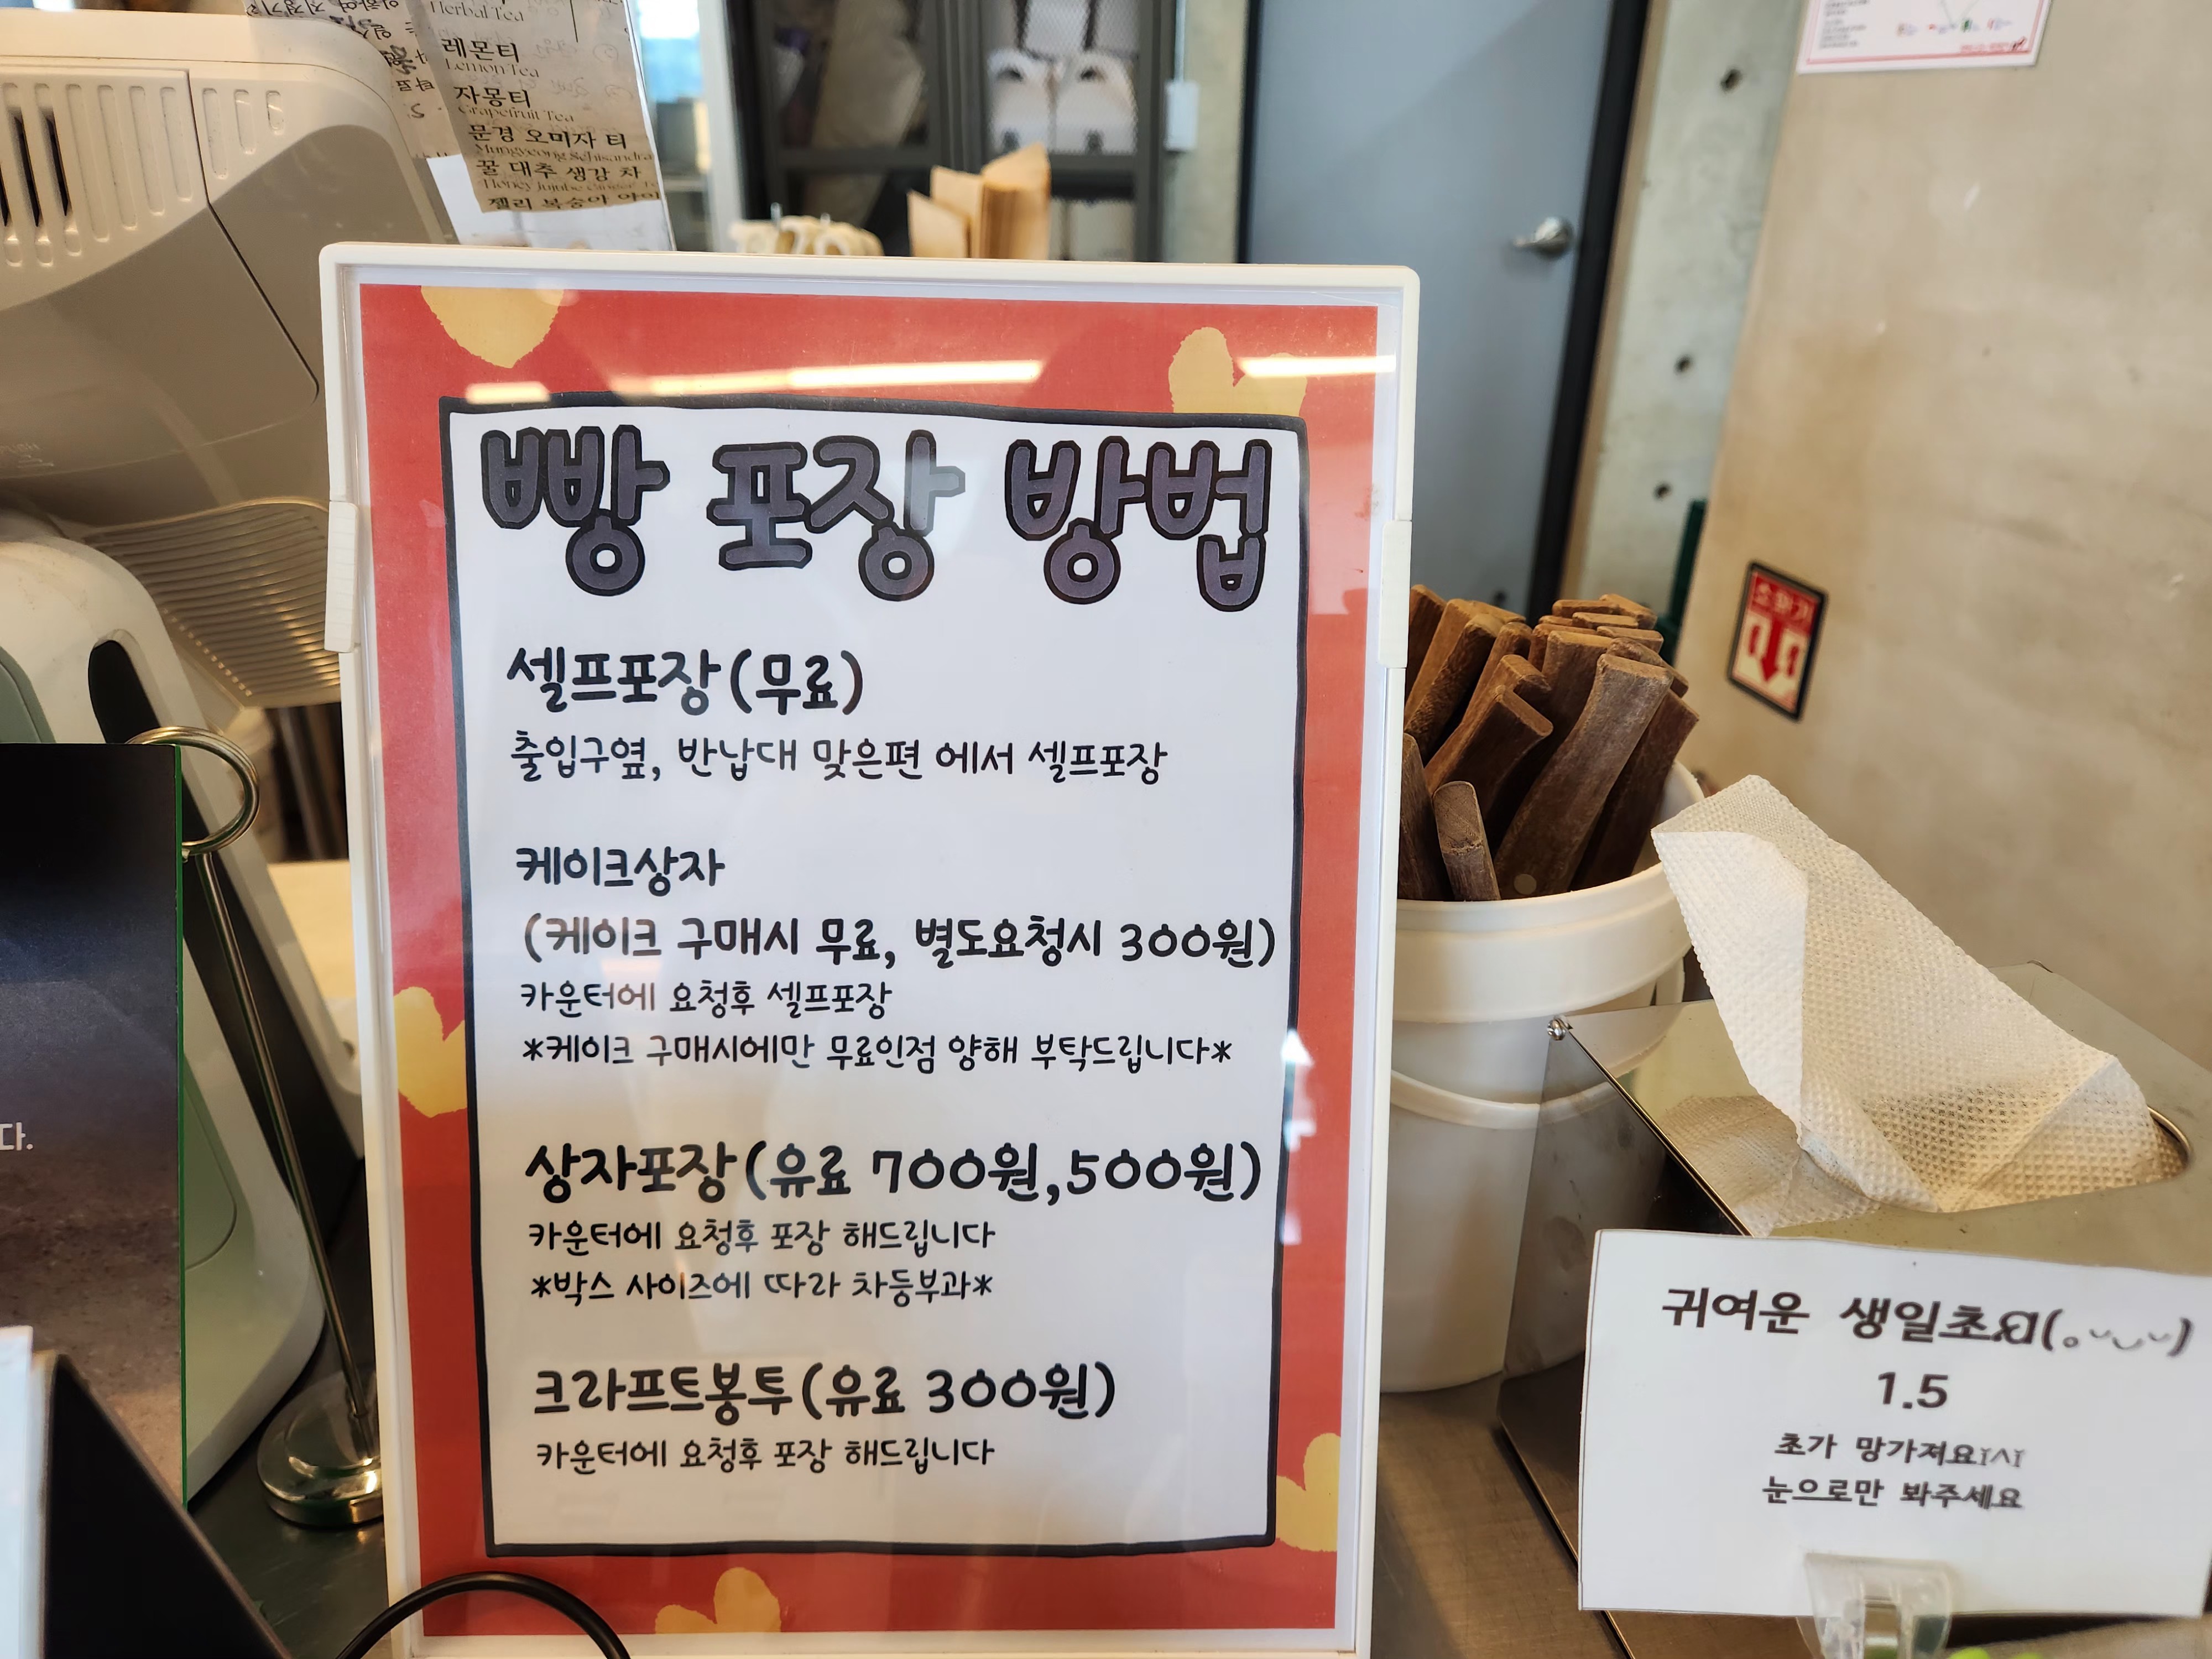 Herbal Tea
레몬티
Lemon Tea
자몽티
Grapefruit Tea
문경 오미자 티
꿀 대추 생강 차
젤리 복숭아
빵 포장 방법
셀프포장(무료)
출입구옆, 반납대 맞은편 에서 셀프포장
케이크상자
(케이크 구매시 무료, 별도요청시 300원)
카운터에 요청후 셀프포장
*케이크 구매시에만 무료인점 양해 부탁드립니다*
상자포장(유료 700원,500원)
카운터에 요청후 포장 해드립니다
*박스 사이즈에 따라 차등부과*
크라프트봉투(유료 300원)
카운터에 요청후 포장 해드립니다
다.
소화기
귀여운 생일초
1.5
초가 망가져요
눈으로만 봐주세요